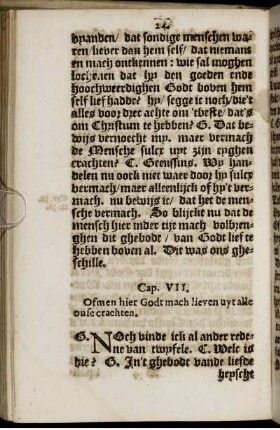 24
vyanden/ dat sondige menschen wa-
ren/ liever dan hem self/ dat niemant
en mach ontkennen: wie sal moghen
lochenen dat hy den goeden ende
hoochweerdighen Godt boven hem
self lief hadde? hy/ segge ic noch/ die't
alles voor drec achte om 'tbeste/ dat's
om Christum te hebben? G. Dat be-
wijs vernoecht my. maer vermach
de Mensche sulcx uyt zijn eyghen
crachten? C. Geenssins. Wy han-
delen nu oock niet waer door hy sulcx
vermach/ maer alleenlijck of hy't ver-
mach. nu bewijs ic/ dat het de men-
sche vermach. So blijckt nu dat de
mensch hier inder tijt mach volbren-
ghen dit ghebodt/ van Godt lief te
hebben boven al. Dit was ons ghe-
schille.
Cap. VII.
Ofmen hier Godt mach lieven uyt alle
onse crachten.
G. NOch vinde ick al ander rede-
ne van twyfele. C. Welc is
die? G. In't ghebodt vande liefde
heyscht